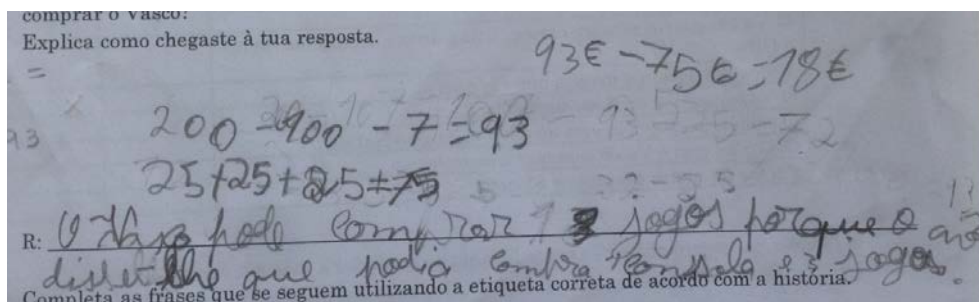 comprar o Vasco?
Explica como chegaste à tua resposta.
93€ - 75€ = 18€
=
93
200 - 100 - 7 = 93
93 - 25 = 72
25 + 25 + 25 = 75
R: O Vasco pode comprar 3 jogos porque o avô
disse lhe que podia compra consola e 3 jogos.
Completa as frases que se seguem utilizando a etiqueta correta de acordo com a história.